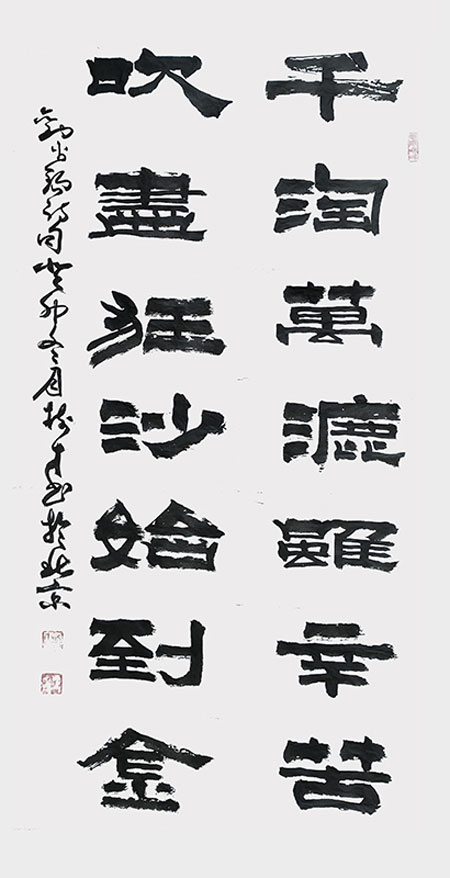 千淘萬漉雖辛苦
吹盡狂沙始到金
劉禹錫詩句癸卯冬月書於北京